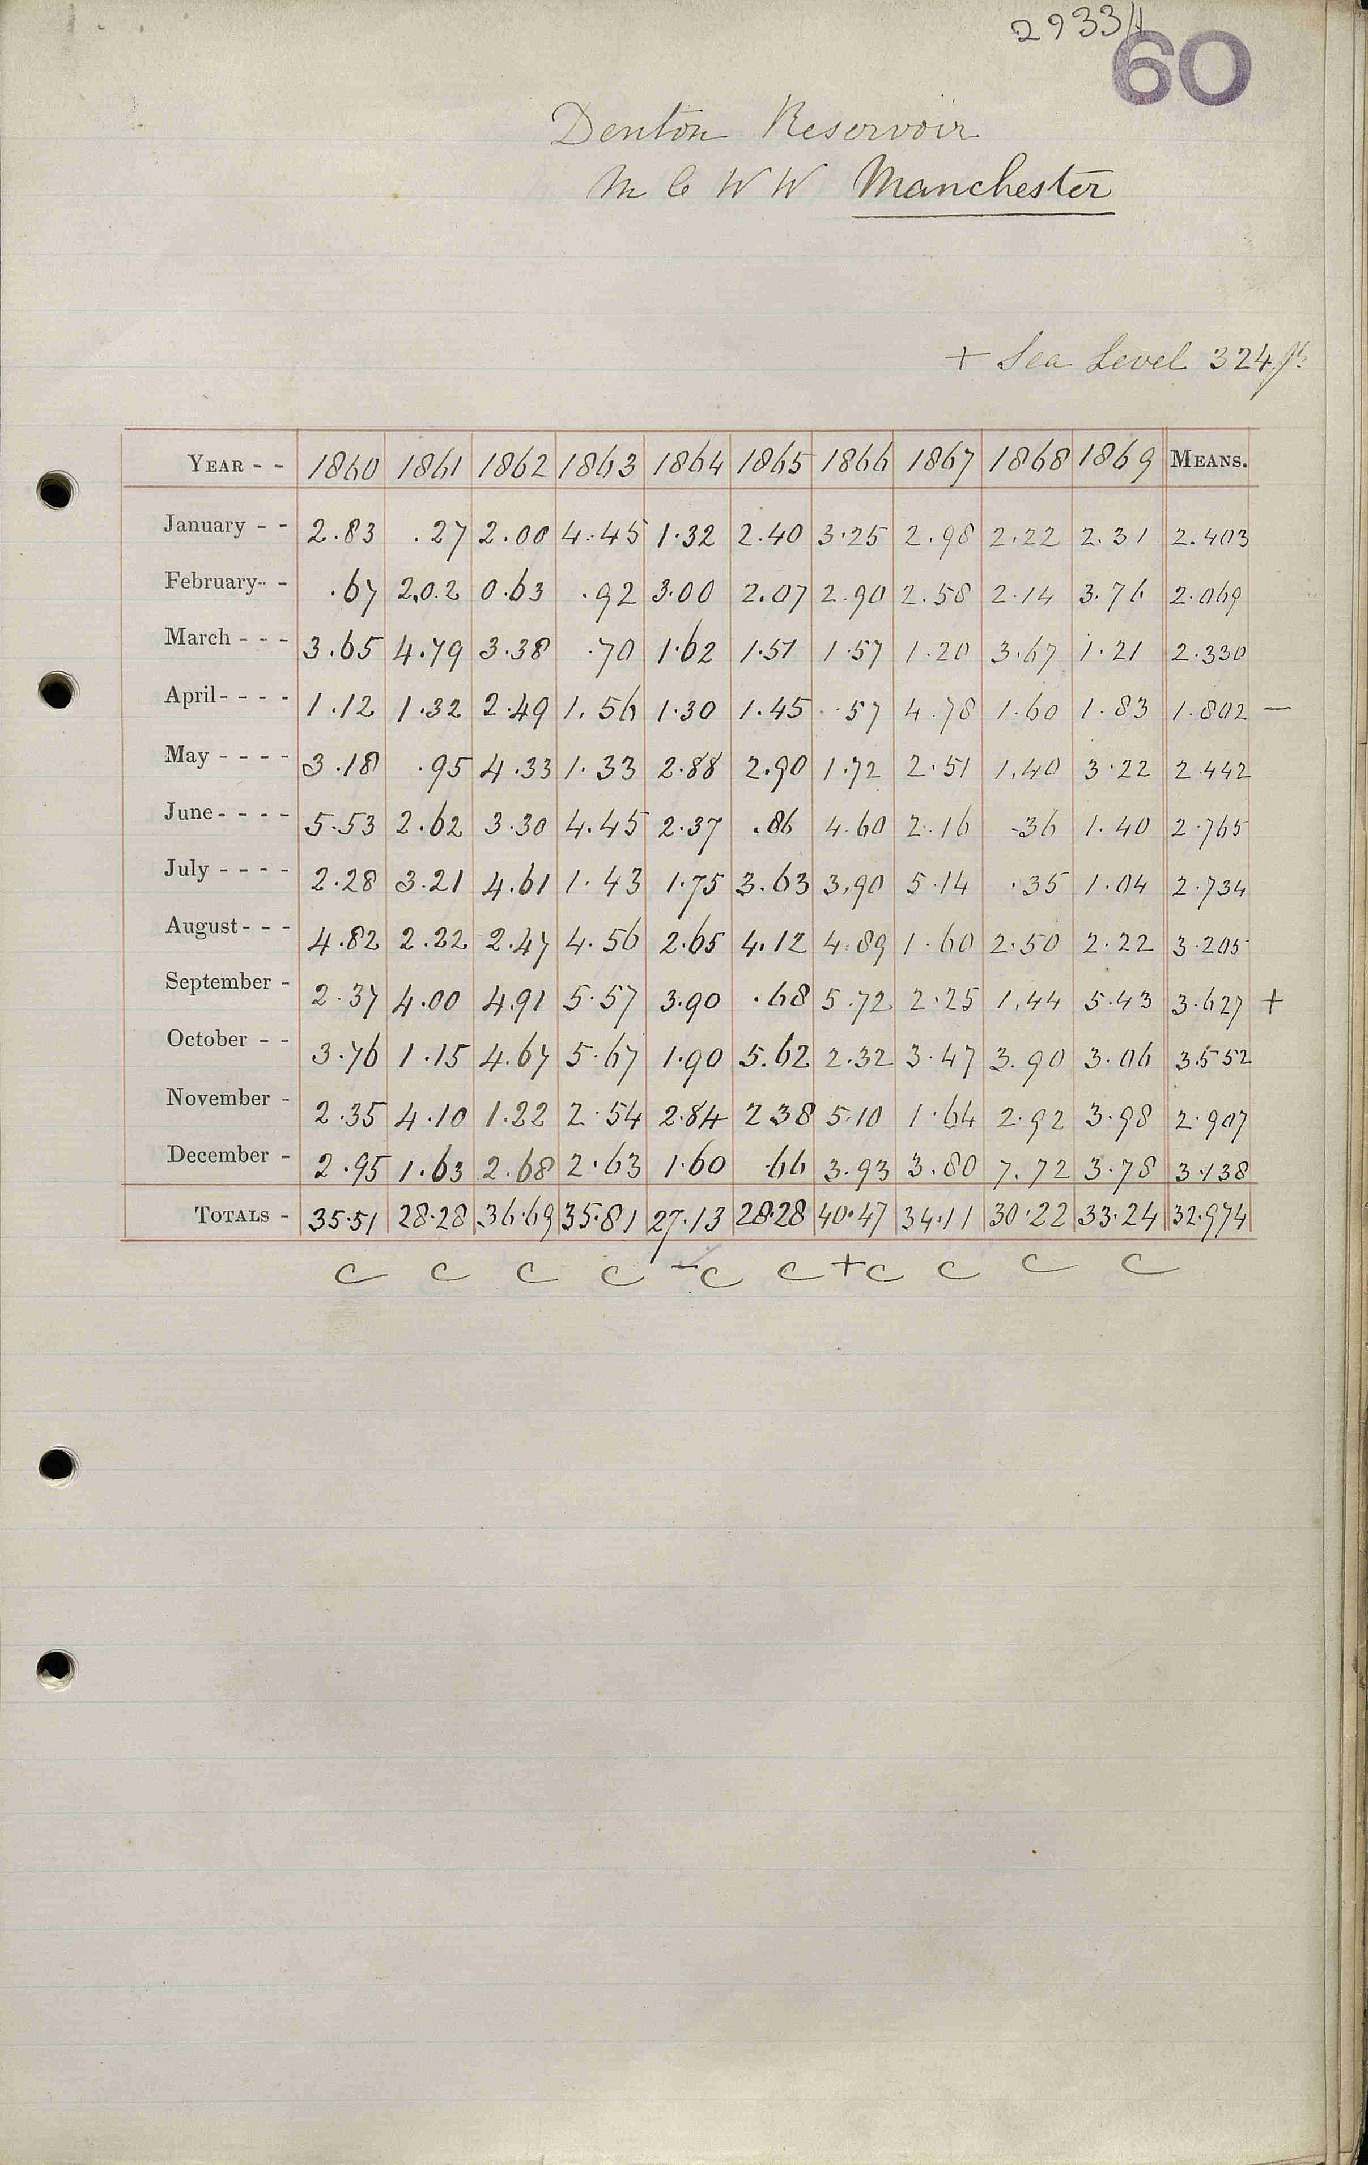 29334
60
Denton Reservoir
M C W W Manchester
+ Sea Level 324 ft
YEAR - - 1860 1861 1862 1863 1864 1865 1866 1867 1868 1869 MEANS.
January - - 2.83 .27 2.00 4.45 1.32 2.40 3.25 2.98 2.22 2.31 2.403
February - - .67 2.02 0.63 .92 3.00 2.07 2.90 2.58 2.14 3.76 2.069
March - - - 3.65 4.79 3.38 .70 1.62 1.51 1.57 1.20 3.67 1.21 2.330
April - - - - 1.12 1.32 2.49 1.56 1.30 1.45 .57 4.78 1.60 1.83 1.802 —
May - - - - 3.18 .95 4.33 1.33 2.88 2.90 1.72 2.51 1.40 3.22 2.442
June - - - - 5.53 2.62 3.30 4.45 2.37 .86 4.60 2.16 .36 1.40 2.765
July - - - - 2.28 3.21 4.61 1.43 1.75 3.63 3.90 5.14 .35 1.04 2.734
August - - - 4.82 2.22 2.47 4.56 2.65 4.12 4.89 1.60 2.50 2.22 3.205
September - 2.37 4.00 4.91 5.57 3.90 .68 5.72 2.25 1.44 5.43 3.627 +
October - - 3.76 1.15 4.67 5.67 1.90 5.62 2.32 3.47 3.90 3.06 3.552
November - 2.35 4.10 1.22 2.54 2.84 2 38 5.10 1.64 2.92 3.98 2.907
December - 2.95 1.63 2.68 2.63 1.60 .66 3.93 3.80 7.72 3.78 3.138
TOTALS - 35.51 28.28 36.69 35.81 27.13 28.28 40.47 34.11 30.22 33.24 32.974
C C C C - C C + C C C C